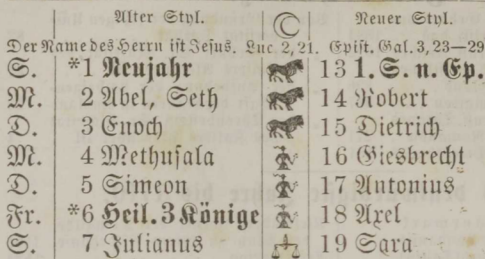 Alter Styl. ☾ Neuer Styl.
Der Name des Herrn ist Jesus. Luc. 2, 21. Epist. Gal. 3, 23—29
S. *1 Neujahr 13 1. S. n. Ep.
M. 2 Abel, Seth 14 Robert
D. 3 Enoch 15 Dietrich
M. 4 Methusala 16 Giesbrecht
D. 5 Simeon 17 Antonius
Fr. *6 Heil. 3 Könige 18 Axel
S. 7 Julianus 19 Sara